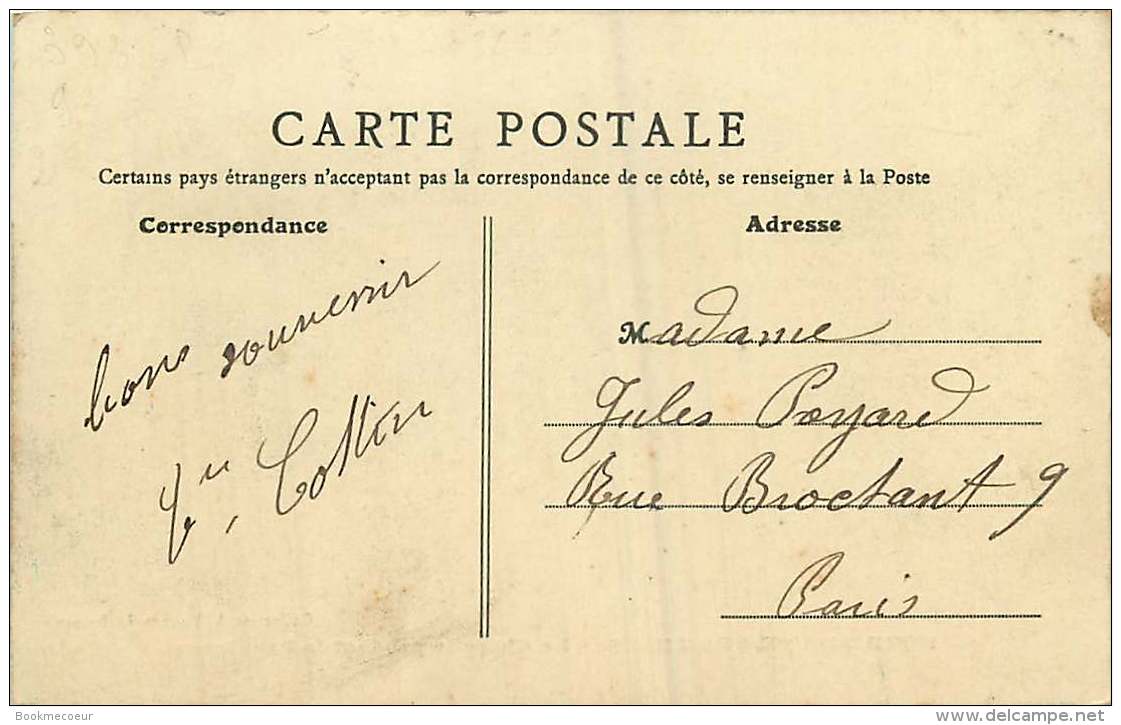 CARTE POSTALE
Certains pays étrangers n'acceptant pas la correspondance de ce côté, se renseigner à la Poste
Correspondance
bons souvenir
Cottin
Adresse
Madame
Jules Poyard
Rue Broctant 9
Paris
Bookmecoeur
www.delcampe.net